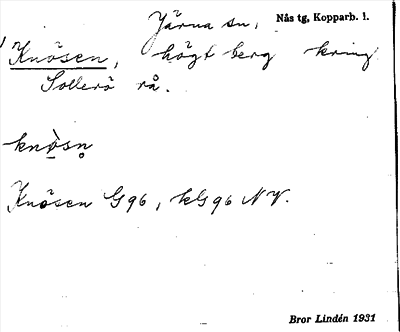 Järna sn, Nås tg, Kopparb. l.
Knösen, högt berg kring
Sollerö rå.
knòsn̥
Knösen G96, kG96 NV.
Bror Lindén 1931